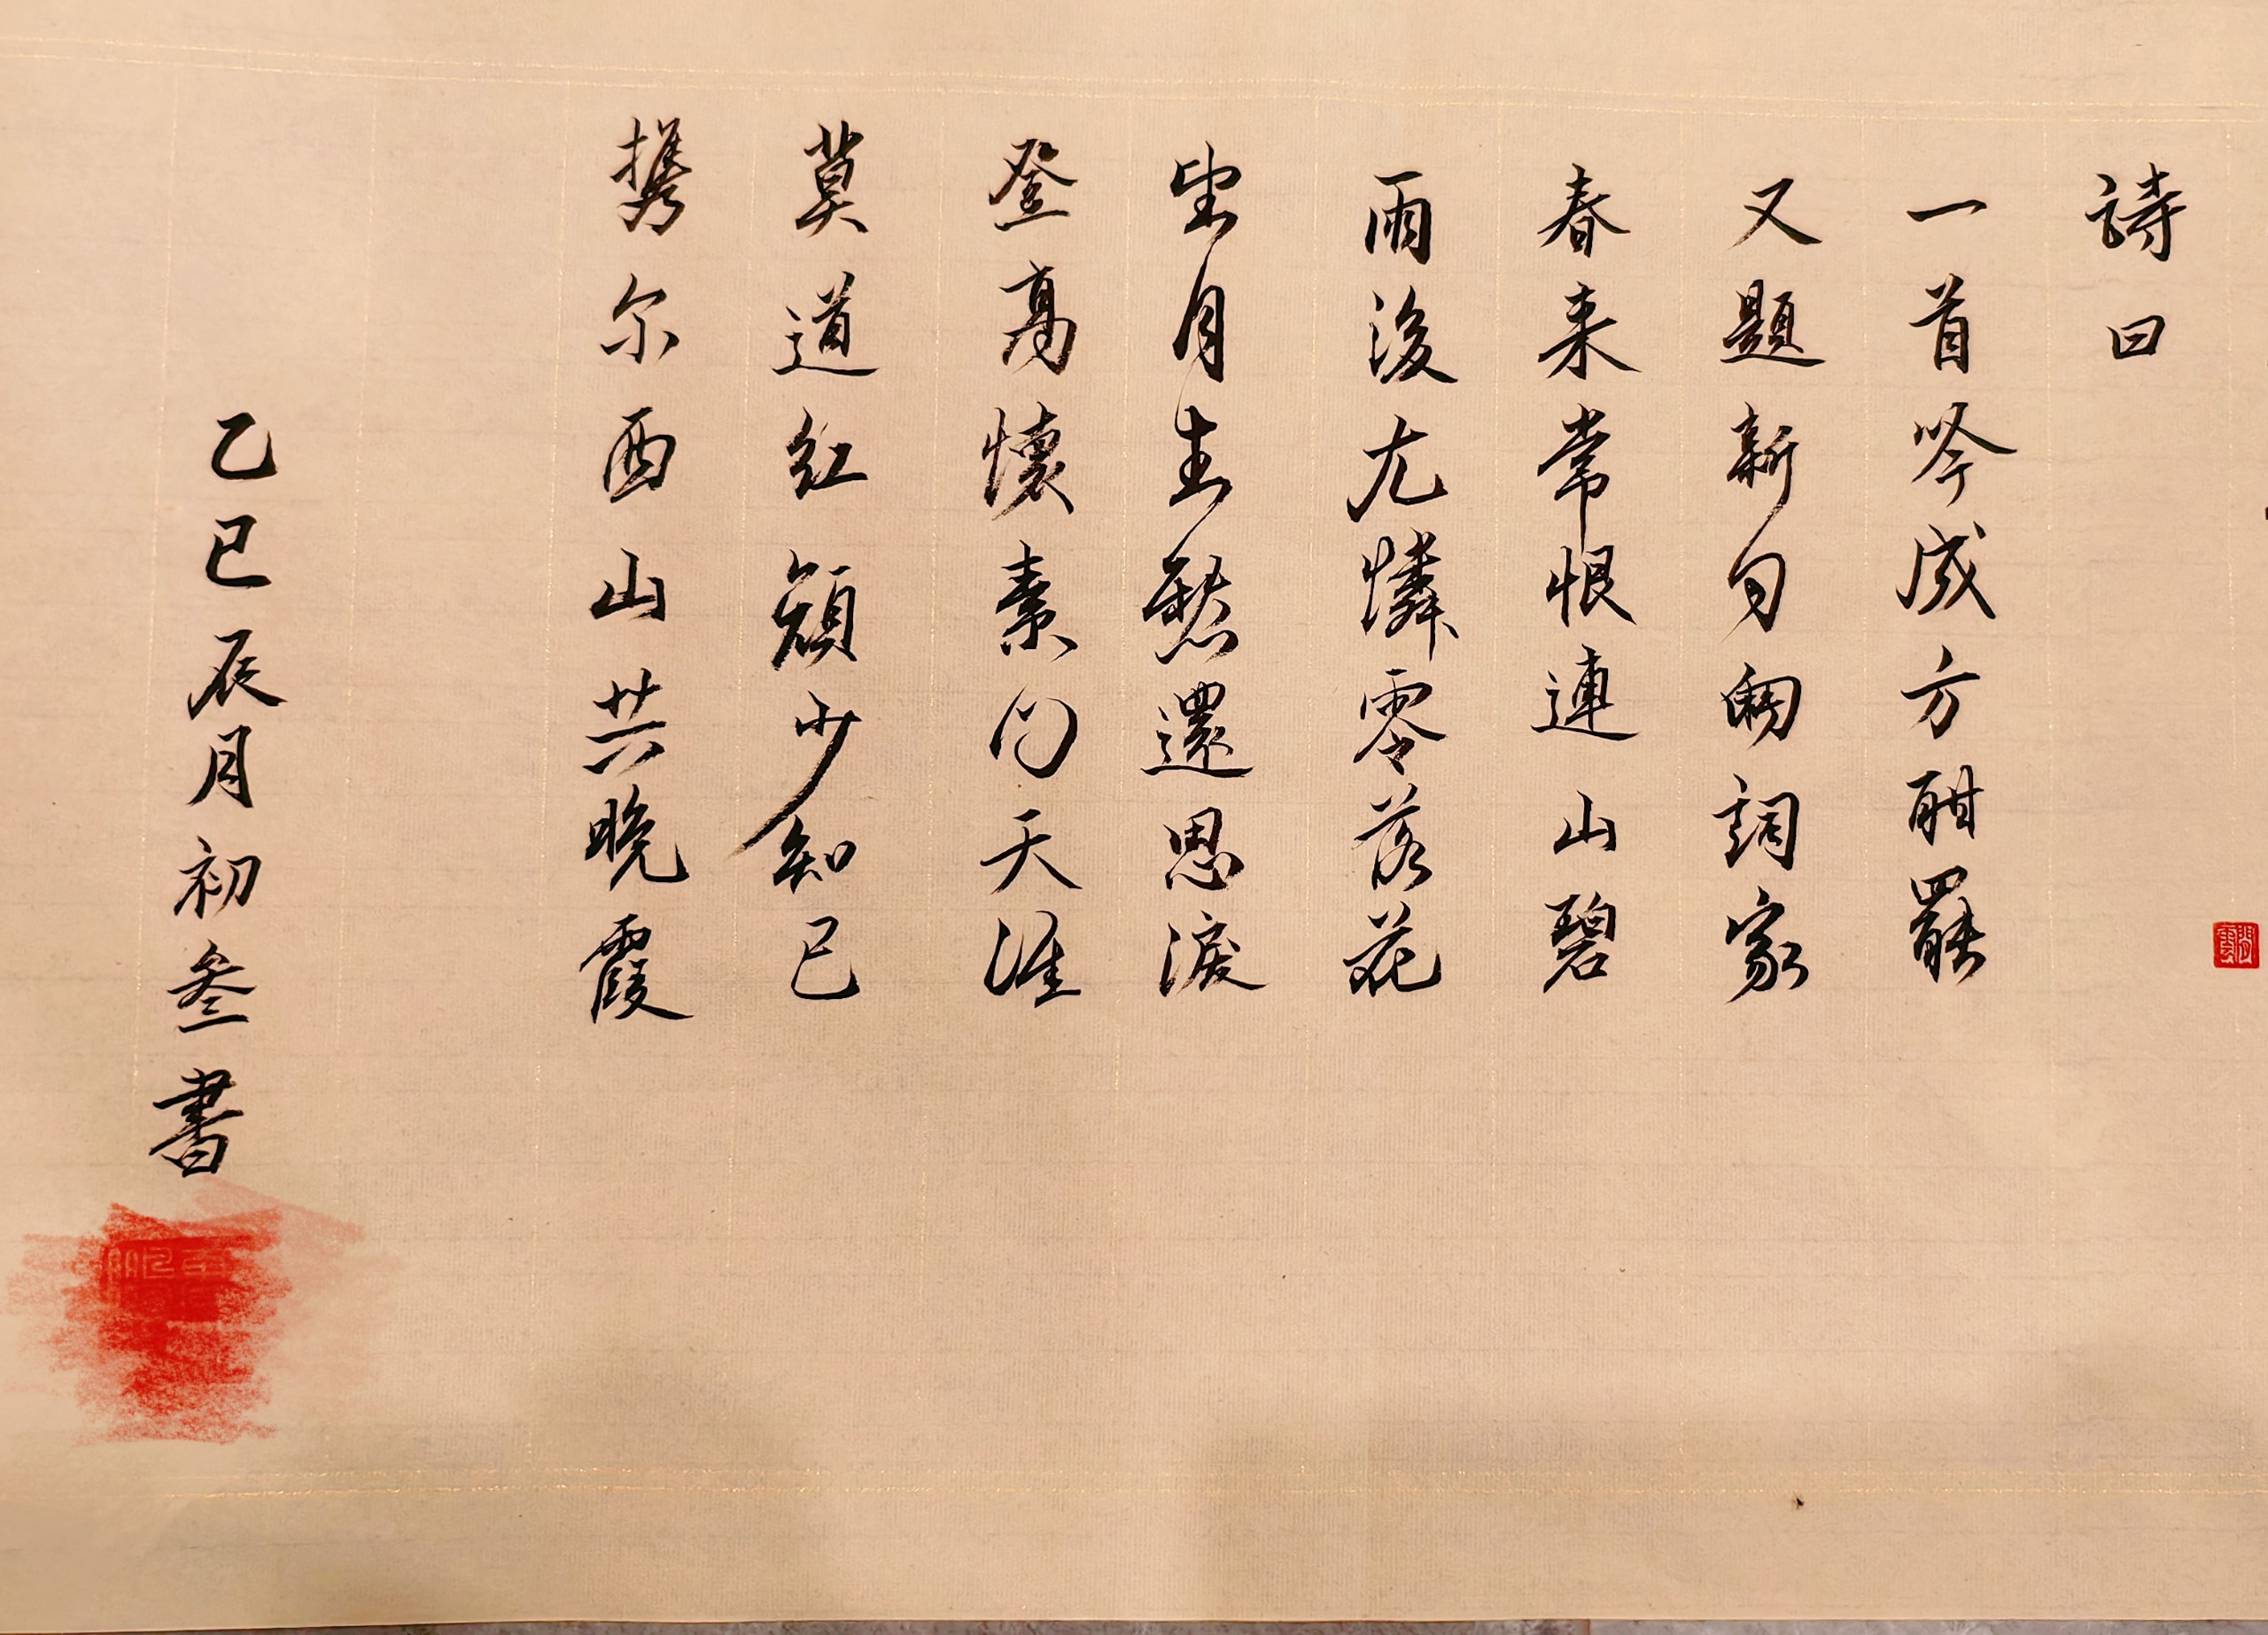 詩曰
一首吟成方酣罷
又題新句詞家
春来常恨連山碧
雨後尤憐零落花
望月生愁還思淚
登高懷素天涯
莫道红顔少知己
携尔西山共晚霞
乙巳辰月初叁書